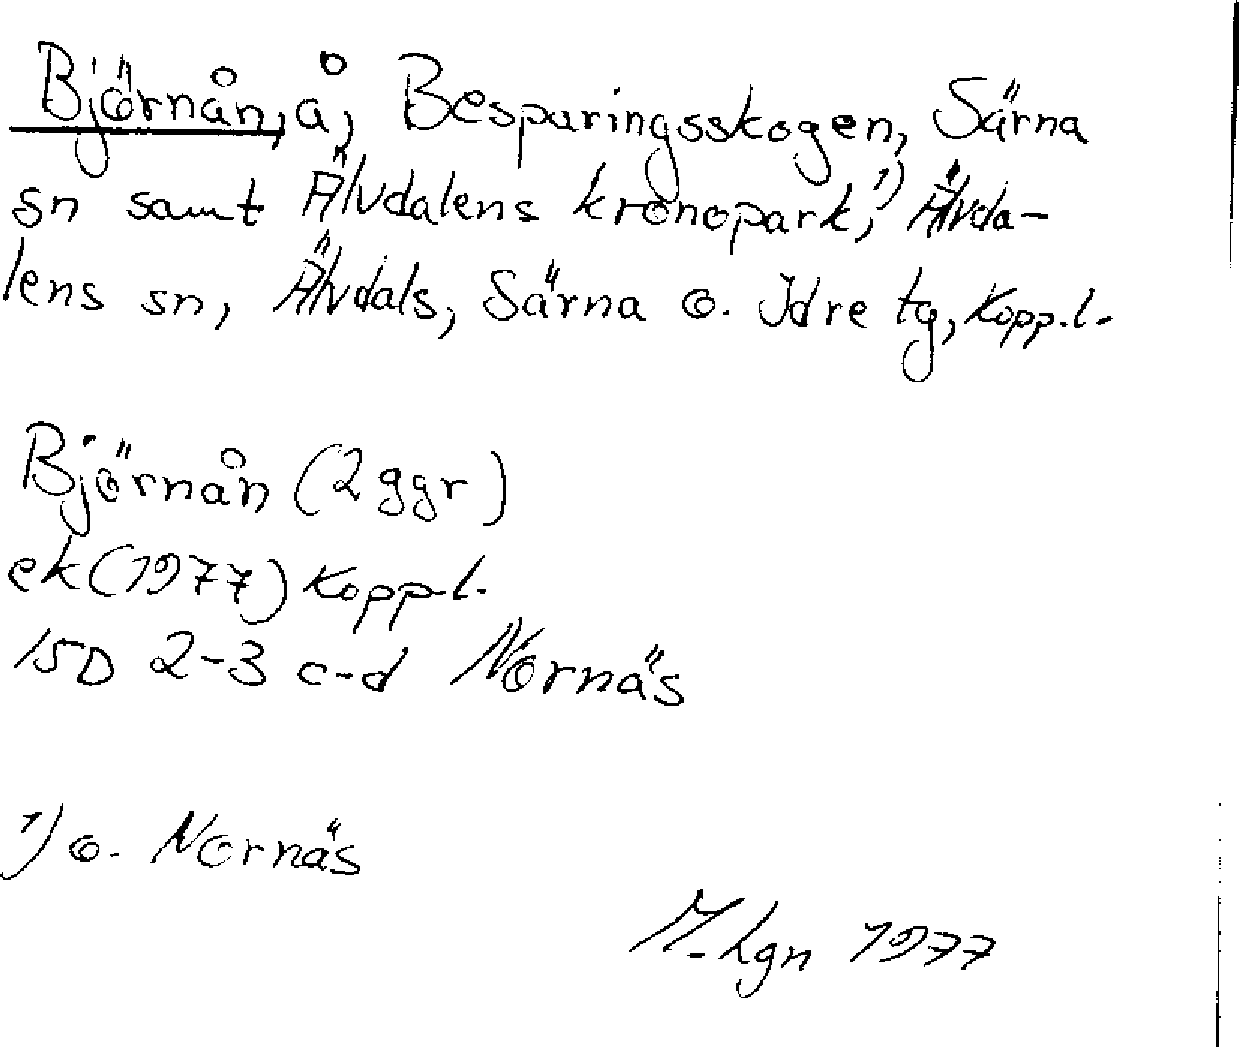 Björnån, å, Besparingsskogen, Särna
sn samt Älvdalens kronopark,¹) Älvda-
lens sn, Älvdals, Särna o. Idre tg, Kopp.l.
Björnån (2 ggr)
ek (1977) Kopp.l.
15D 2-3 c-d Nornäs
1) o. Nornäs
M. Lgn 1977